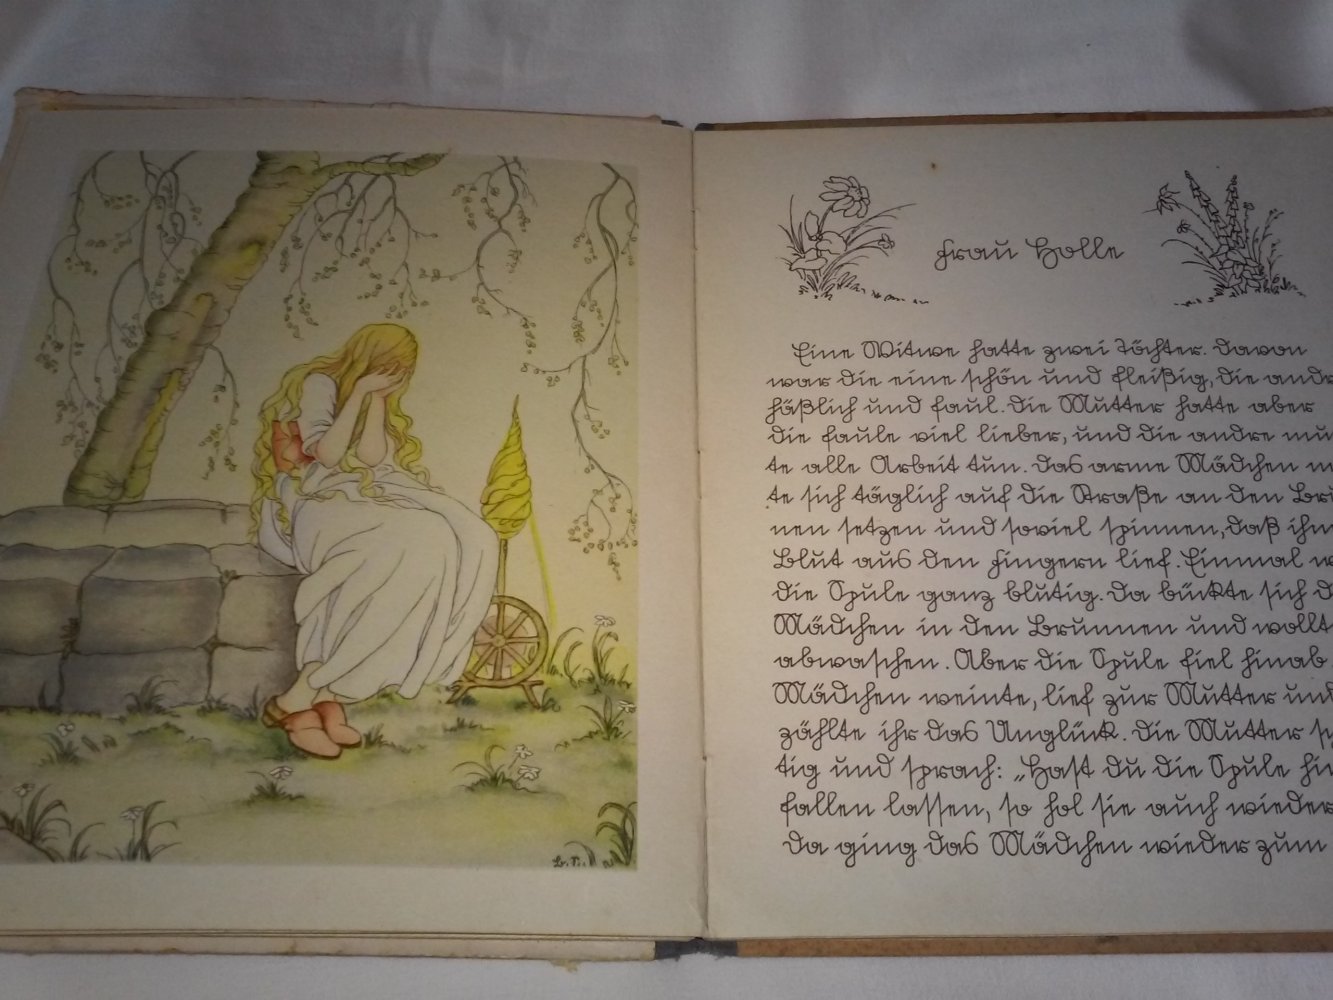 Frau Holle
Eine Witwe hatte zwei Töchter. Davon
war die eine schön und fleißig, die andr
häßlich und faul. Die Mutter hatte aber
die faule viel lieber, und die andre mu
te alle Arbeit tun. Das arme Mädchen m
te sich täglich auf die Straße an den Bru
nen setzen und soviel spinnen, daß ihm
Blut aus den Fingern lief. Einmal w
die Spule ganz blutig. Da bückte sich d
Mädchen in den Brunnen und wollt
abwaschen. Aber die Spule fiel hinab
Mädchen weinte, lief zur Mutter und
zählte ihr das Unglück. Die Mutter sch
tig und sprach: „Hast du die Spule hin
fallen lassen, so hol sie auch wieder
Da ging das Mädchen wieder zum